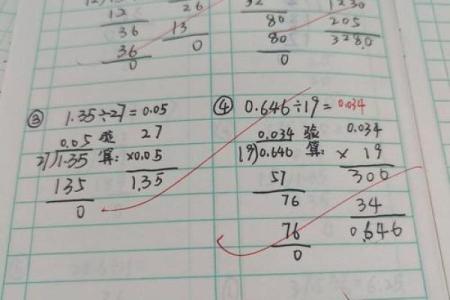 12
26
36
13
36
0
0
80
80
0
1230
205
3280
③ 1.35÷27=0.05
0.05 验 27
27)1.35 算: ×0.05
135 1.35
0
④ 0.646÷19=0.034
0.034 验 0.034
19)0.646 算: × 19
57 306
76 34
76 0.646
0